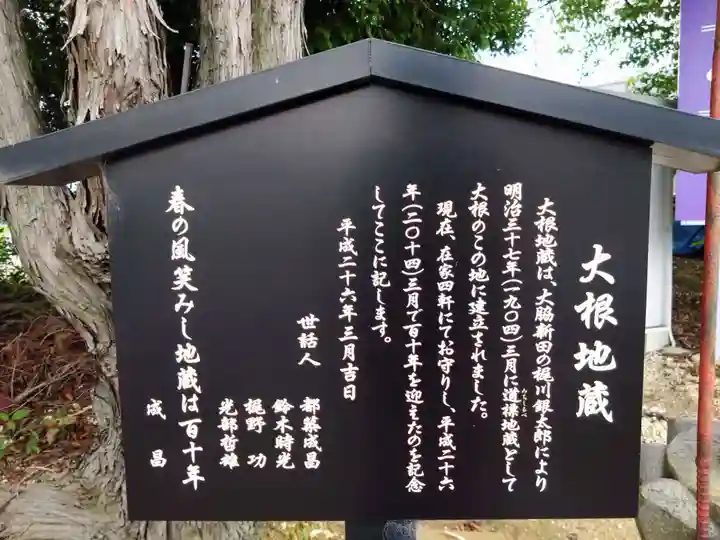 大根地蔵
大根地蔵は、大脇新田の梶川銀太郎により
明治三十七年(一九〇四)三月に道標地蔵として
みちしるべ
大根のこの地に建立されました。
現在、在家四軒にてお守りし、平成二十六
年(二〇一四)三月で百十年を迎えたのを記念
してここに記します。
平成二十六年三月吉日
世話人
都築成昌
鈴木時光
梶野功
光部哲雄
春の風笑みし地蔵は百十年
成昌